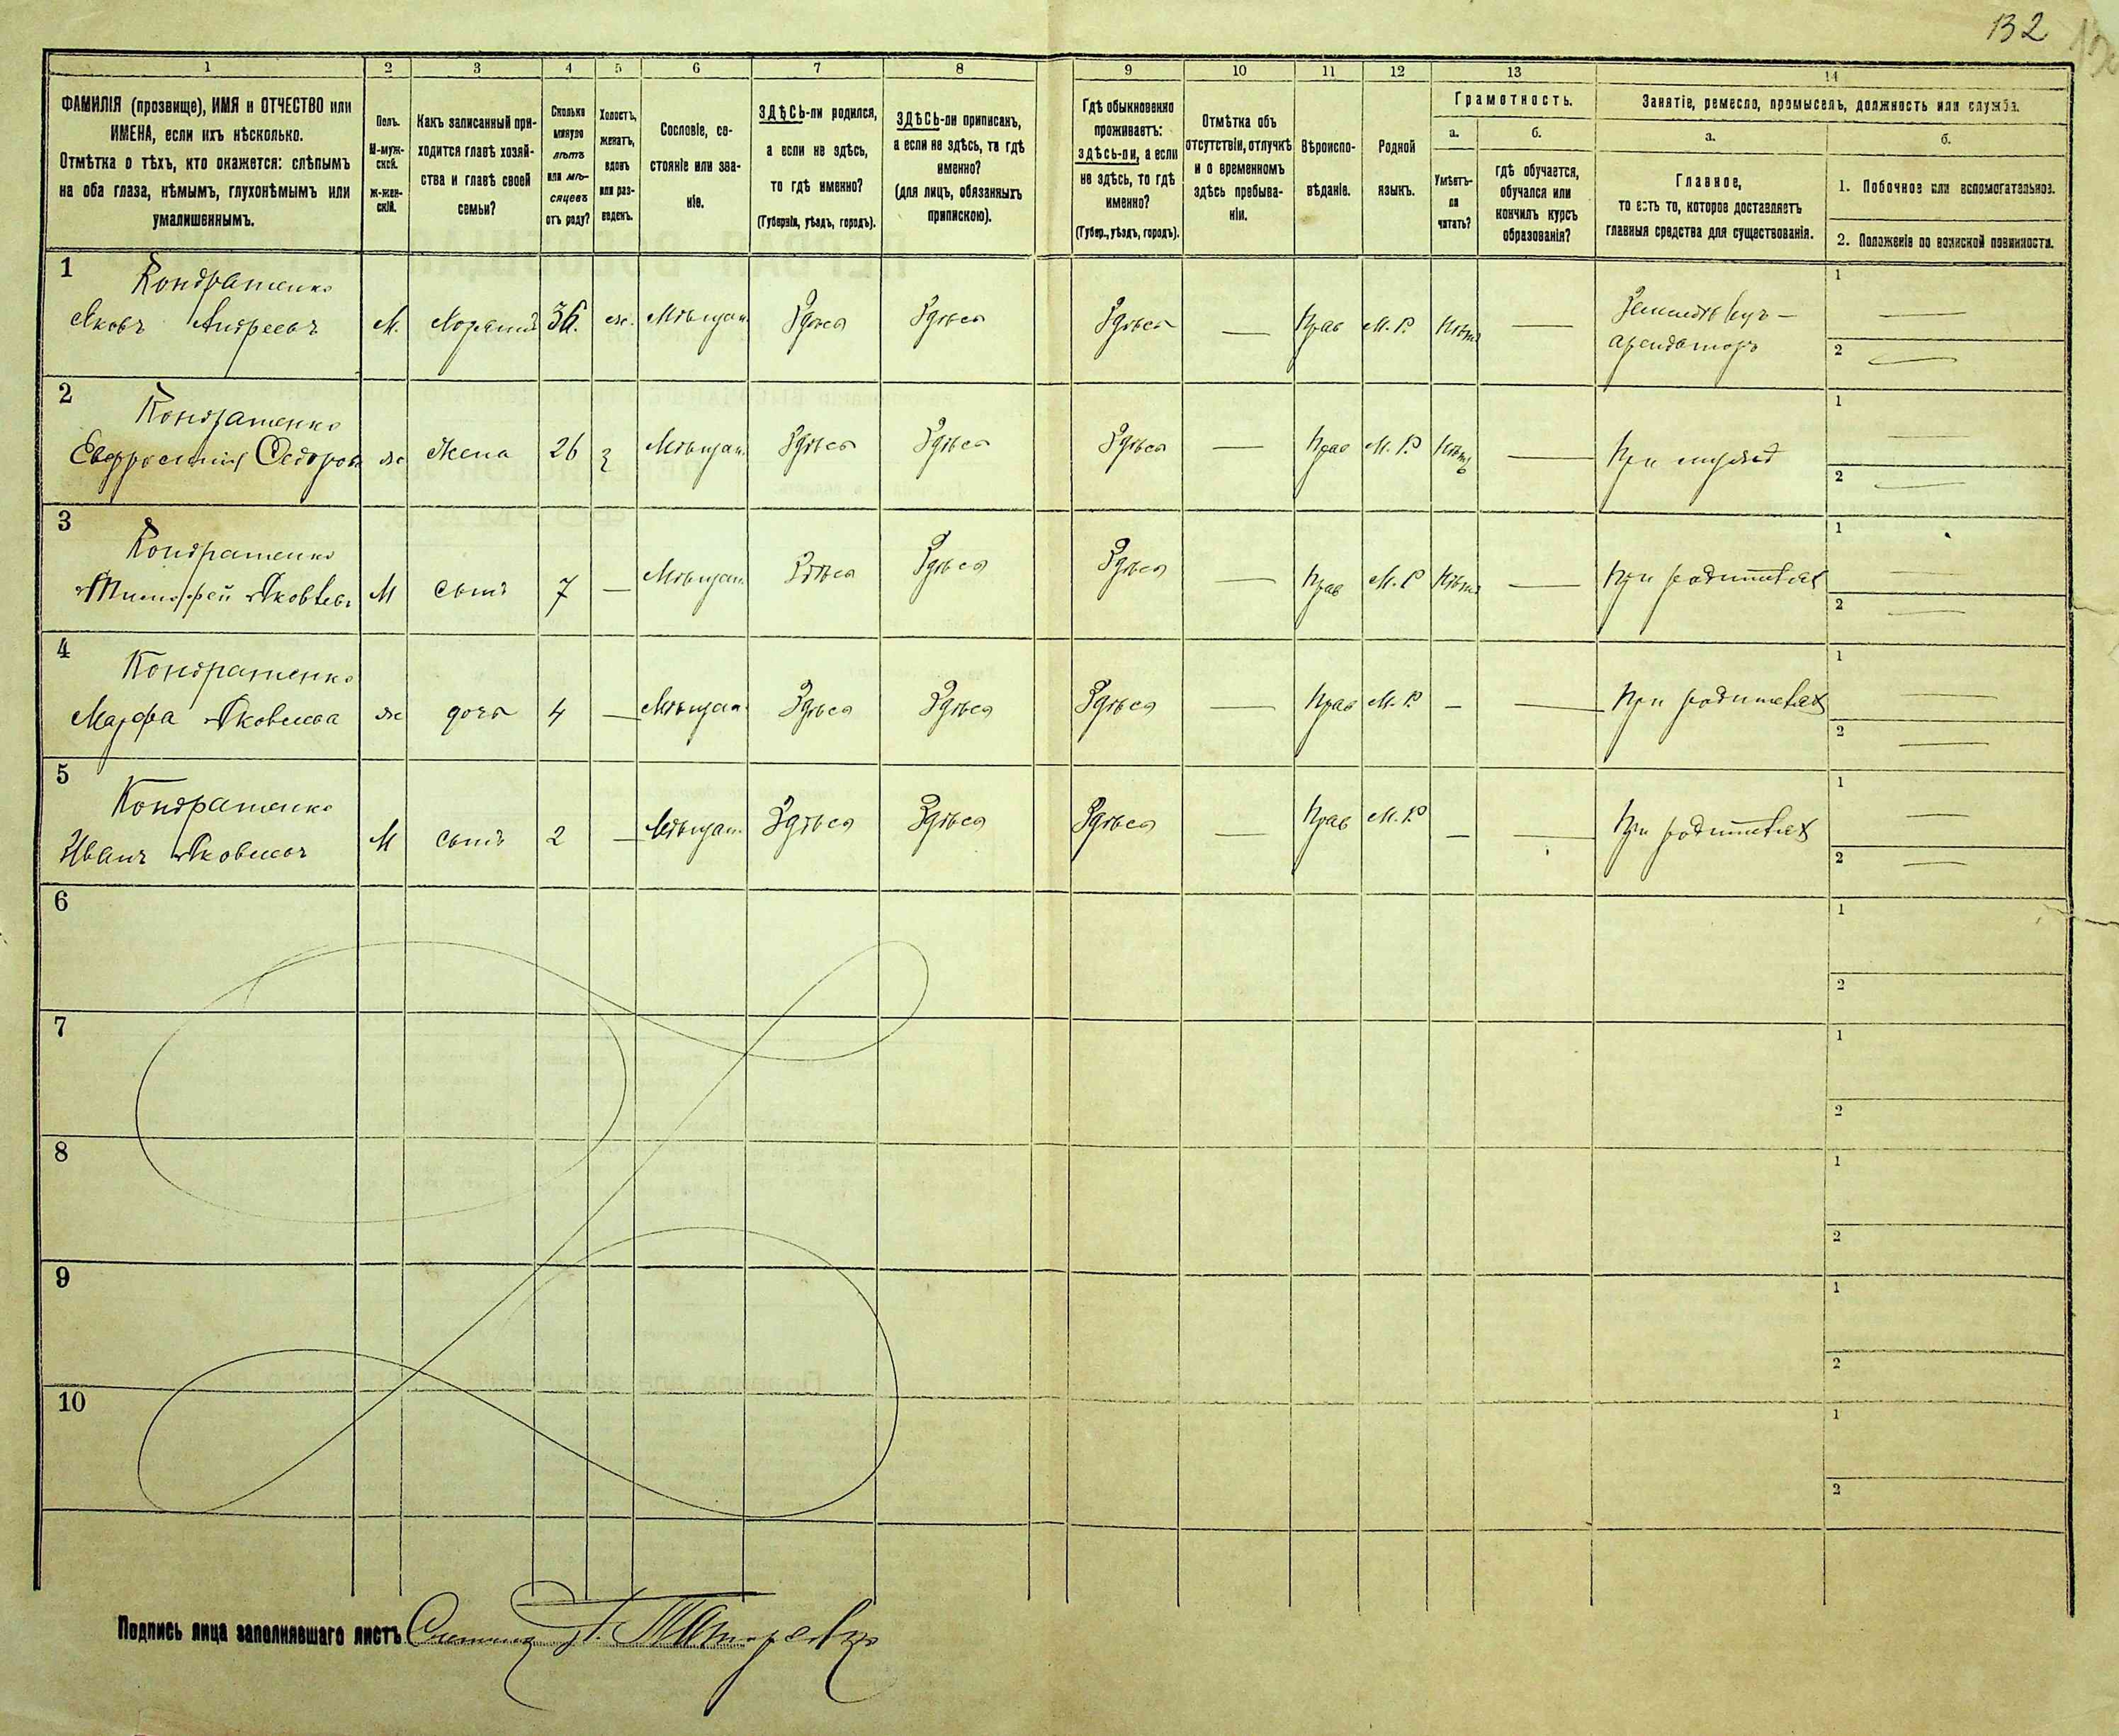 132
1 2 3 4 5 6 7 8 9 10 11 12 13 14
ФАМИЛІЯ (прозвище), ИМЯ и ОТЧЕСТВО или
ИМЕНА, если ихъ нѣсколько.
Отмѣтка о тѣхъ, кто окажется: слѣпымъ
на оба глаза, нѣмымъ, глухонѣмымъ или
умалишеннымъ.
Полъ.
М-муж-
ской.
Ж-жен-
скій.
Какъ записанный при-
ходится главѣ хозяй-
ства и главѣ своей
семьи?
Сколько
минуло
лѣтъ
или мѣ-
сяцевъ
отъ роду?
Холостъ,
женатъ,
вдовъ
или раз-
веденъ.
Сословіе, со-
стояніе или зва-
ніе.
ЗДѢСЬ-ли родился,
а если не здѣсь,
то гдѣ именно?
(Губернія, уѣздъ, городъ).
ЗДѢСЬ-ли приписанъ,
а если не здѣсь, то гдѣ
именно?
(для лицъ, обязанныхъ
припискою).
Гдѣ обыкновенно
проживаетъ:
здѣсь-ли, а если
не здѣсь, то гдѣ
именно?
(Губер., уѣздъ, городъ).
Отмѣтка объ
отсутствіи, отлучкѣ
и о временномъ
здѣсь пребыва-
ніи.
Вѣроиспо-
вѣданіе.
Родной
языкъ.
Грамотность.
а.
Умѣетъ-
ли
читать?
б.
гдѣ обучается,
обучался или
кончилъ курсъ
образованія?
Занятіе, ремесло, промыселъ, должность или служба.
а.
Главное,
то есть то, которое доставляетъ
главныя средства для существованія.
б.
1. Побочное или вспомогательное.
2. Положеніе по воинской повинности.
1 Кондратенко
Яковъ Андреевъ М. Хозяинъ 36. ж. Мѣщан. Здѣсь Здѣсь Здѣсь — Прав М. Р. Нѣтъ — Земледѣлецъ — 1 —
арендаторъ 2 —
2 Кондратенко
Евфросинія Федоров ж жена 26 з Мѣщан. Здѣсь Здѣсь Здѣсь — Прав М. Р Нѣтъ — При мужѣ 1 —
2 —
3 Кондратенко
Тимофей Яковлевъ М сынъ 7 — Мѣщан. Здѣсь Здѣсь Здѣсь — Прав М. Р Нѣтъ — При родителях 1 —
2 —
4 Кондратенко
Марфа Яковлева ж дочь 4 — Мѣщан. Здѣсь Здѣсь Здѣсь — Прав М. Р — — При родителях 1 —
2 —
5 Кондратенко
Иванъ Яковлевъ М сынъ 2 — Мѣщан. Здѣсь Здѣсь Здѣсь — Прав М. Р — — При родителях 1 —
2 —
6 1
2
7 1
2
8 1
2
9 1
2
10 1
2
Подпись лица заполнявшаго листъ